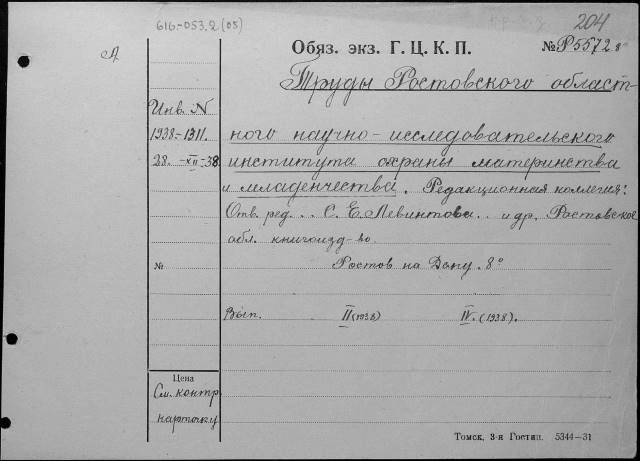 616-053.2(05)
204
А
Обяз. экз. Г. Ц. К. П. № Р5572
Труды Ростовского област-
Инв. N
1938-1311.
28.-XII-38
ного научно-исследовательского
института охраны материнства
и младенчества. Редакционная коллегия:
Отв. ред... С. Е. Левинтова.. и др. Ростовское
обл. книгоизд-во.
№
Ростов на Дону. 8°
Вып. II (1938) IV. (1938).
Цена
См. контр
карточку
Томск, 3-я Гостип. 5344—31